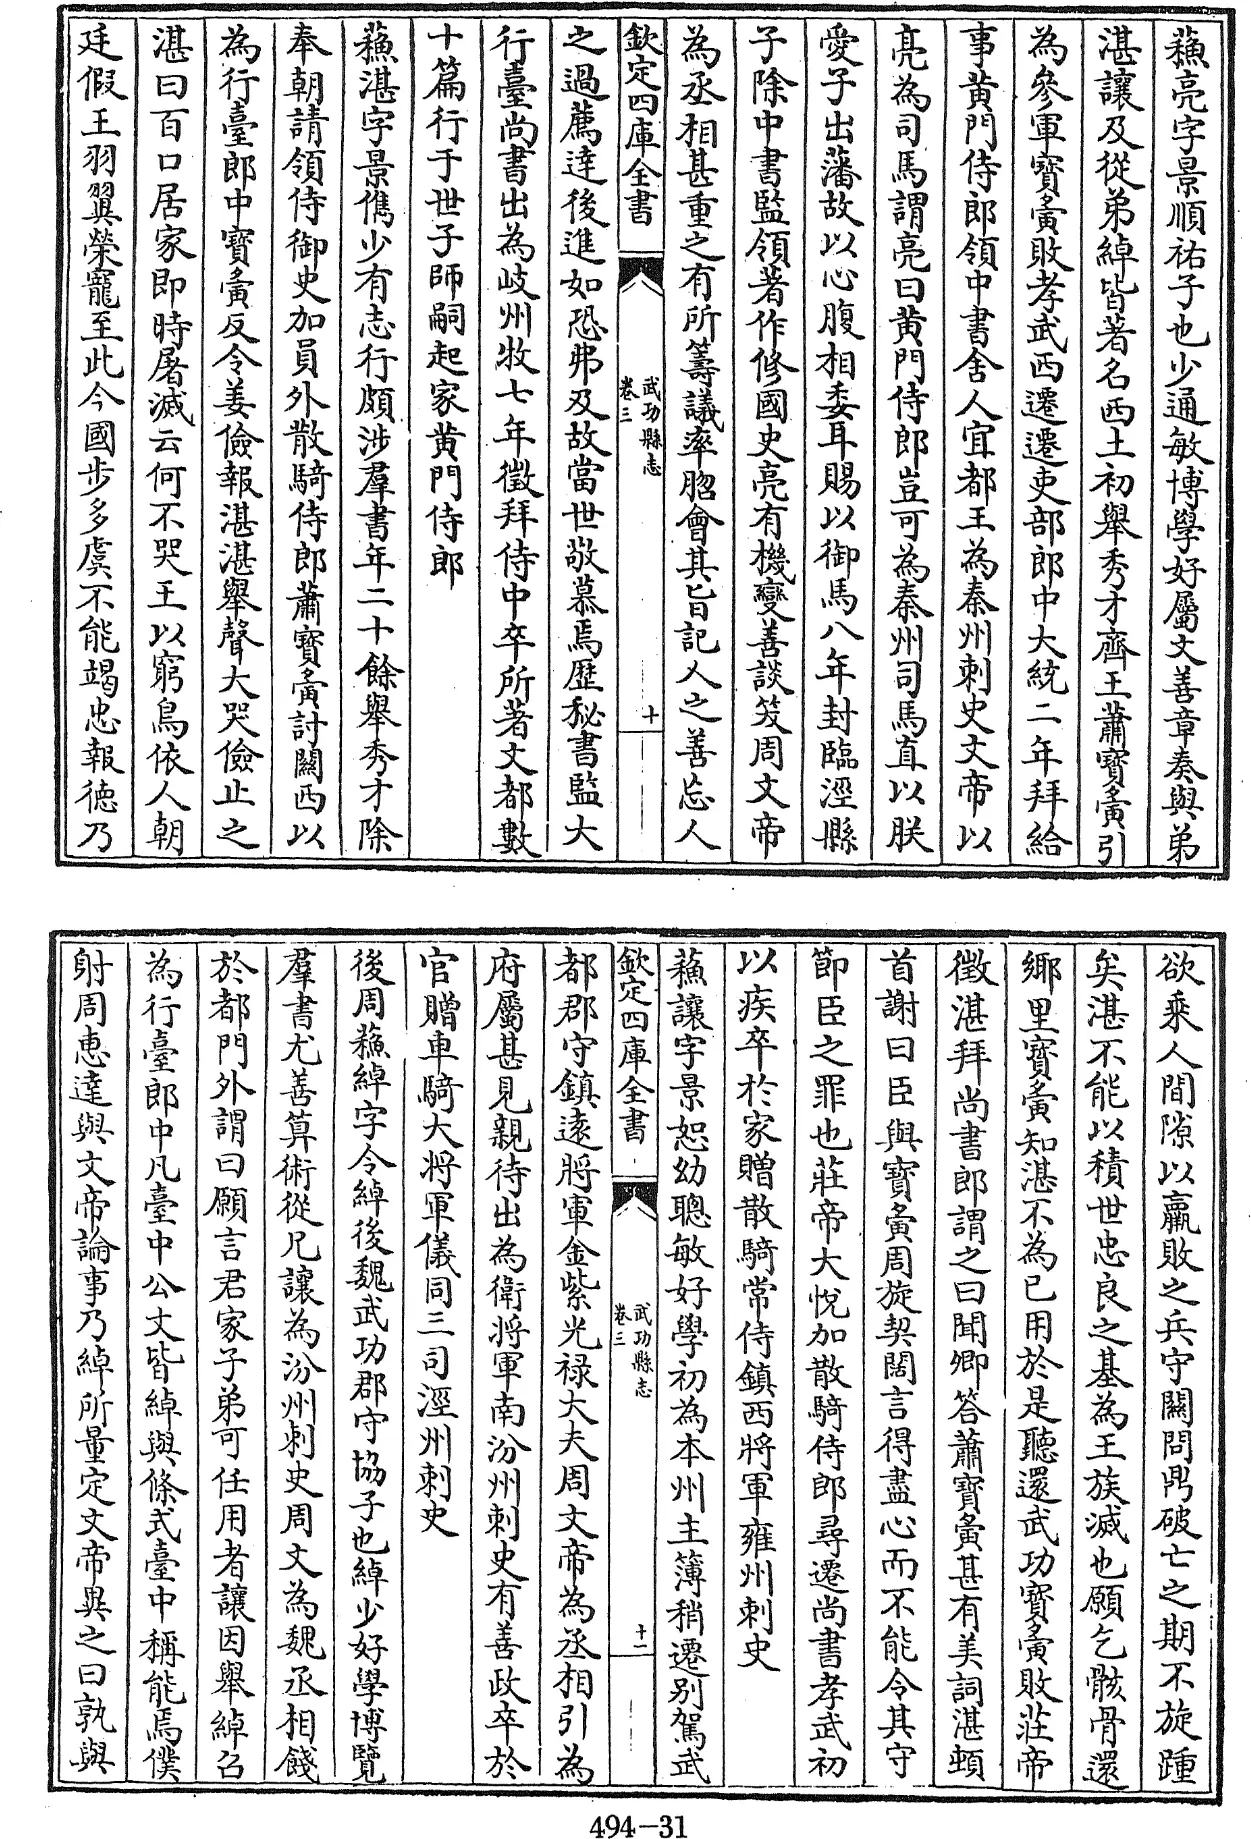 蘓亮字景順祐子也少通敏博學好屬文善章奏與弟
湛讓及從弟綽皆著名西土初舉秀才齊王蕭寶夤引
為參軍寶夤敗孝武西遷遷吏部郎中大統二年拜給
事黄門侍郎領中書舍人宜都王為秦州刺史文帝以
亮為司馬謂亮曰黄門侍郎豈可為秦州司馬直以朕
愛子出藩故以心腹相委耳賜以御馬八年封臨涇縣
子除中書監領著作修國史亮有機變善談笑周文帝
為丞相甚重之有所籌議率脗會其旨記人之善忘人
欽定四庫全書
武功縣志
卷三
十
之過薦達後進如恐弗及故當世敬慕焉歴秘書監大
行臺尚書出為岐州牧七年徵拜侍中卒所著文都數
十篇行于世子師嗣起家黄門侍郎
蘓湛字景儁少有志行頗涉羣書年二十餘舉秀才除
奉朝請領侍御史加員外散騎侍郎蕭寶夤討關西以
為行臺郎中寶夤反令姜儉報湛湛舉聲大哭儉止之
湛曰百口居家即時屠滅云何不哭王以窮鳥依人朝
廷假王羽翼榮寵至此今國步多虞不能竭忠報徳乃
欲乘人間隙以羸敗之兵守關問鼎破亡之期不旋踵
矣湛不能以積世忠良之基為王族滅也願乞骸骨還
鄉里寶夤知湛不為已用於是聽還武功寶夤敗莊帝
徴湛拜尚書郎謂之曰聞卿答蕭寶夤甚有美詞湛頓
首謝曰臣與寶夤周旋契闊言得盡心而不能令其守
節臣之罪也莊帝大悦加散騎侍郎尋遷尚書孝武初
以疾卒於家贈散騎常侍鎮西將軍雍州刺史
蘓讓字景恕幼聰敏好學初為本州主簿稍遷别駕武
欽定四庫全書
武功縣志
卷三
十一
都郡守鎮遠將軍金紫光禄大夫周文帝為丞相引為
府屬甚見親待出為衛將軍南汾州刺史有善政卒於
官贈車騎大將軍儀同三司涇州刺史
後周蘓綽字令綽後魏武功郡守協子也綽少好學博覽
羣書尤善算術從兄讓為汾州刺史周文為魏丞相餞
於都門外謂曰願言君家子弟可任用者讓因舉綽召
為行臺郎中凡臺中公文皆綽與條式臺中稱能焉僕
射周惠達與文帝論事乃綽所量定文帝異之曰孰與
494-31